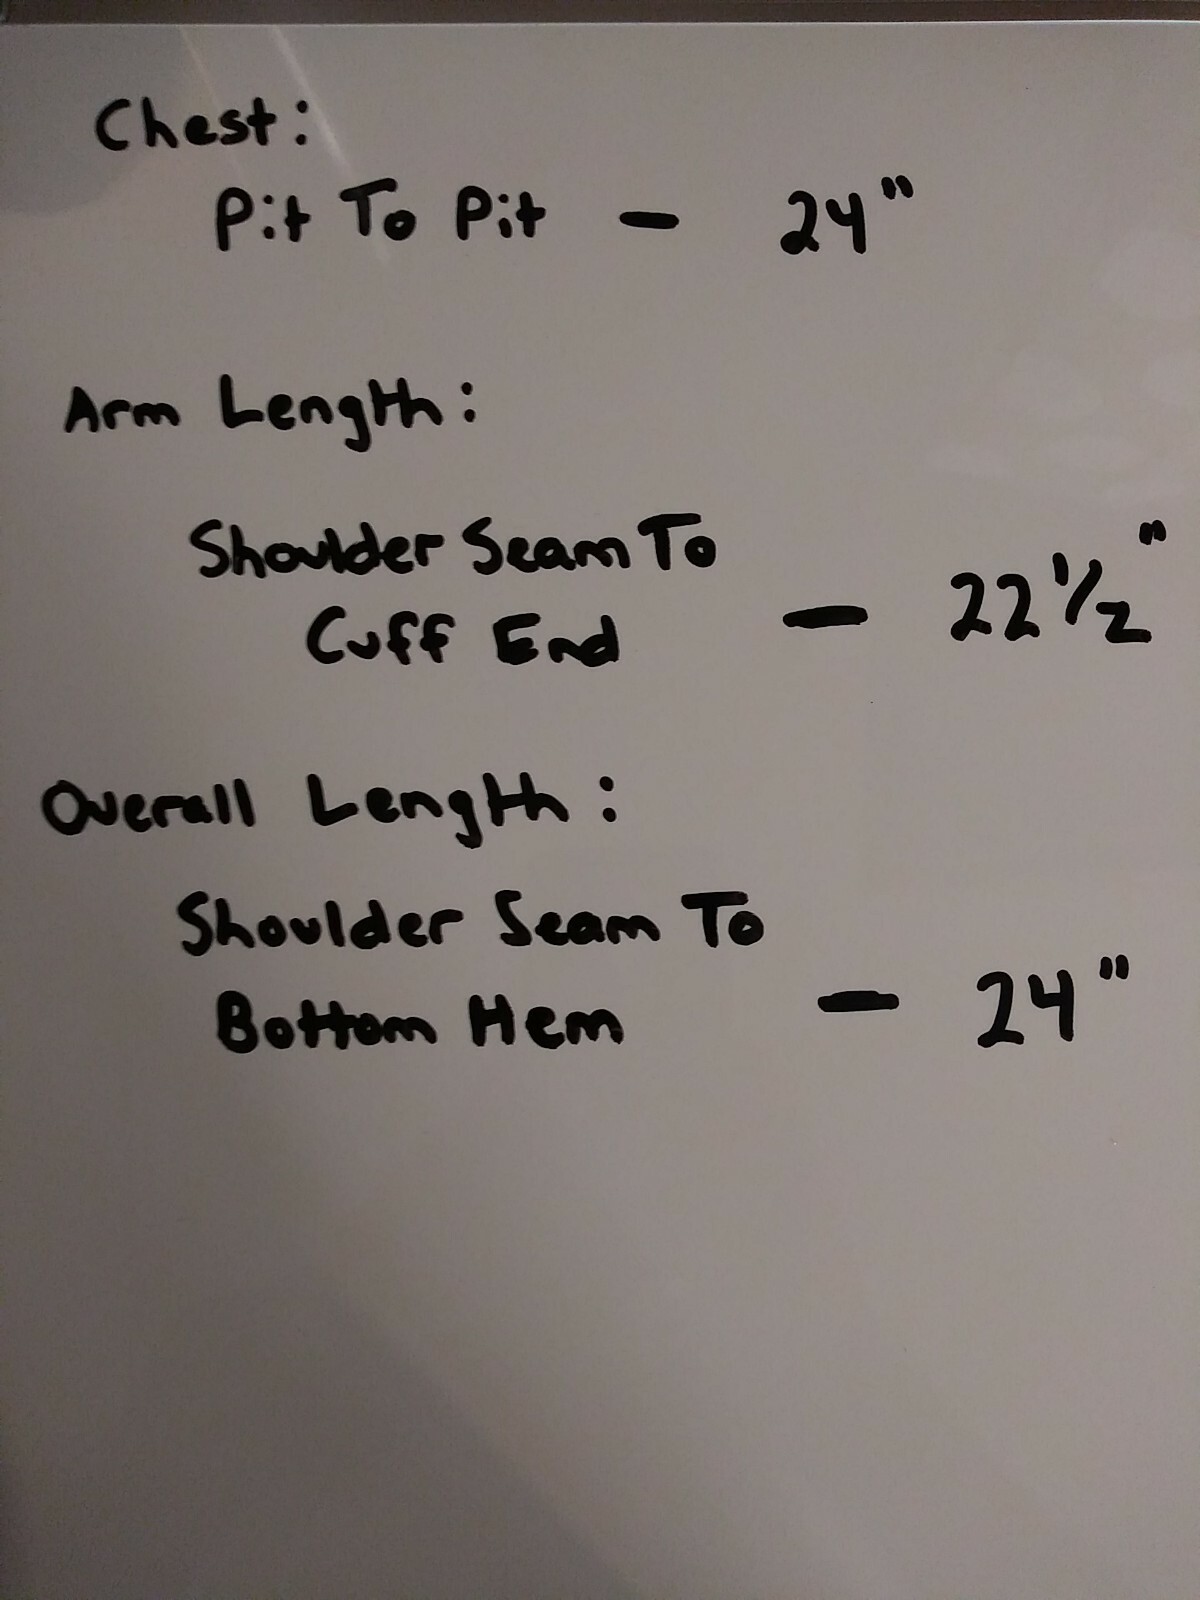 Chest:
Pit To Pit - 24"
Arm Length:
Shoulder Seam To
Cuff End - 22 1/2"
Overall Length:
Shoulder Seam To
Bottom Hem - 24"